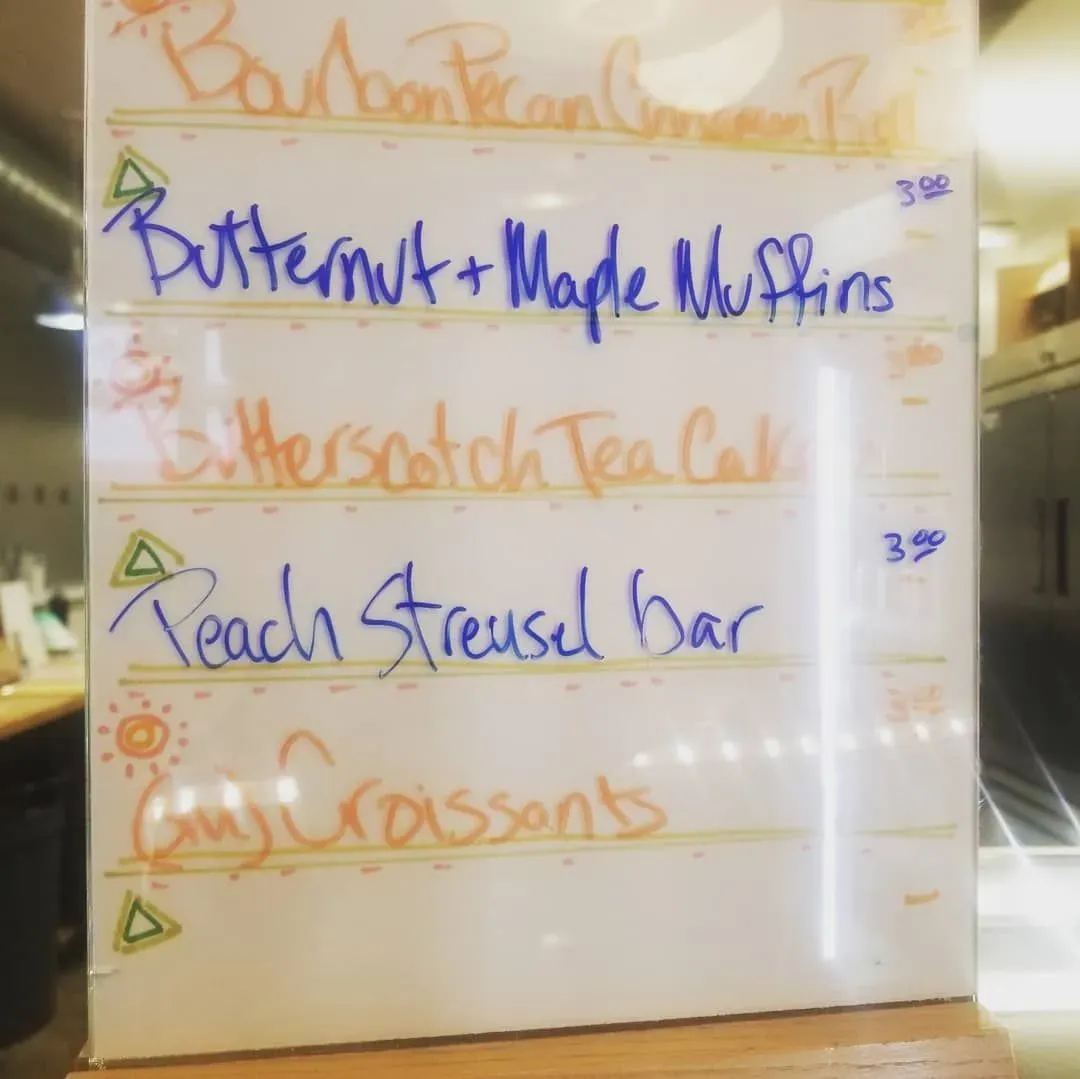 Bourbon Pecan Cinnamon
3.00
Butternut + Maple Muffins
Butterscotch Tea Cakes
3.00
Peach Streusel bar
Croissants